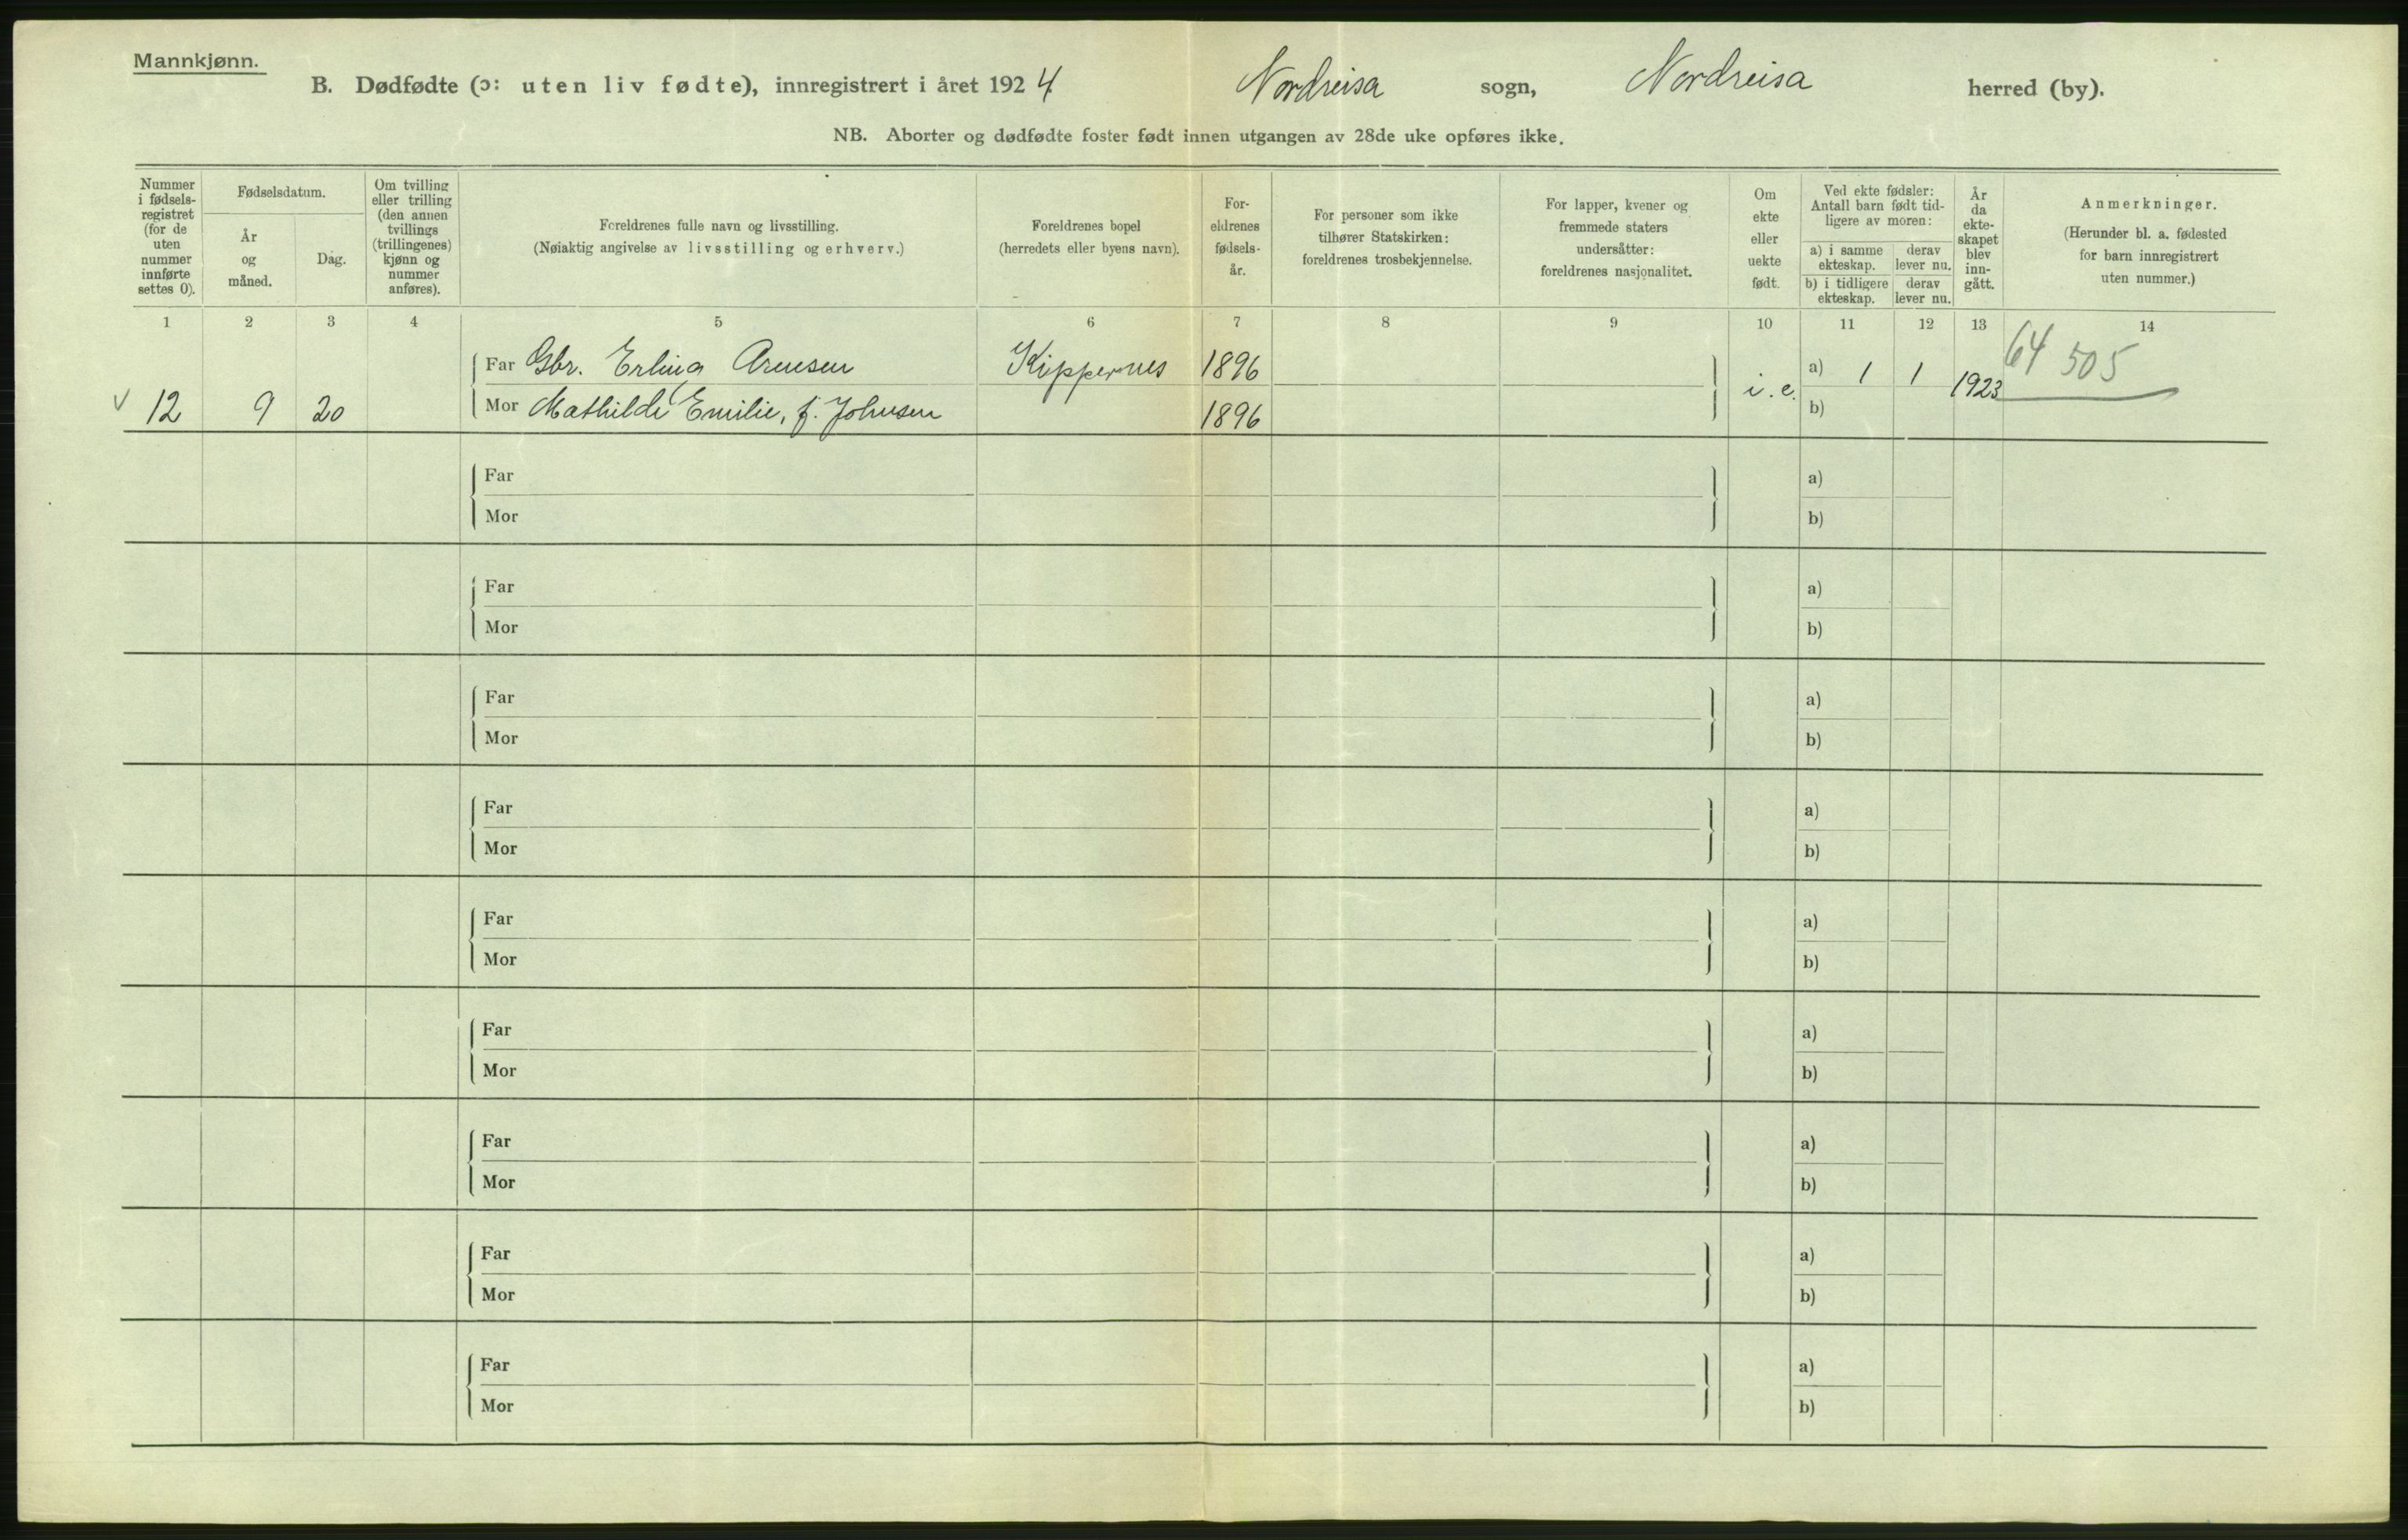 Mannkjønn.
B. Dødfødte (ɔ: uten liv fødte), innregistrert i året 1924 Nordreisa sogn, Nordreisa herred (by).
NB. Aborter og dødfødte foster født innen utgangen av 28de uke opføres ikke.
Nummer i fødsels-registret (for de uten nummer innførte settes 0).
Fødselsdatum.
År og måned.
Dag.
Om tvilling eller trilling (den annen tvillings (trillingenes) kjønn og nummer anføres).
Foreldrenes fulle navn og livsstilling.
(Nøiaktig angivelse av livsstilling og erhverv.)
Foreldrenes bopel
(herredets eller byens navn).
For-eldrenes fødsels-år.
For personer som ikke
tilhører Statskirken:
foreldrenes trosbekjennelse.
For lapper, kvener og
fremmede staters
undersåtter:
foreldrenes nasjonalitet.
Om ekte eller uekte født.
Ved ekte fødsler:
Antall barn født tid-
ligere av moren:
a) i samme ekteskap.
derav lever nu.
b) i tidligere ekteskap.
derav lever nu.
År da ekte-skapet blev inn-gått.
Anmerkninger.
(Herunder bl. a. fødested
for barn innregistrert
uten nummer.)
1 2 3 4 5 6 7 8 9 10 11 12 13 14
Far Gbr. Erling Arnesen Kippernes 1896 a) 1 1 64 505
12 9 20 Mor Mathilde Emilie, f. Johnsen 1896 i. e. b) 1923
Far a)
Mor b)
Far a)
Mor b)
Far a)
Mor b)
Far a)
Mor b)
Far a)
Mor b)
Far a)
Mor b)
Far a)
Mor b)
Far a)
Mor b)
Far a)
Mor b)